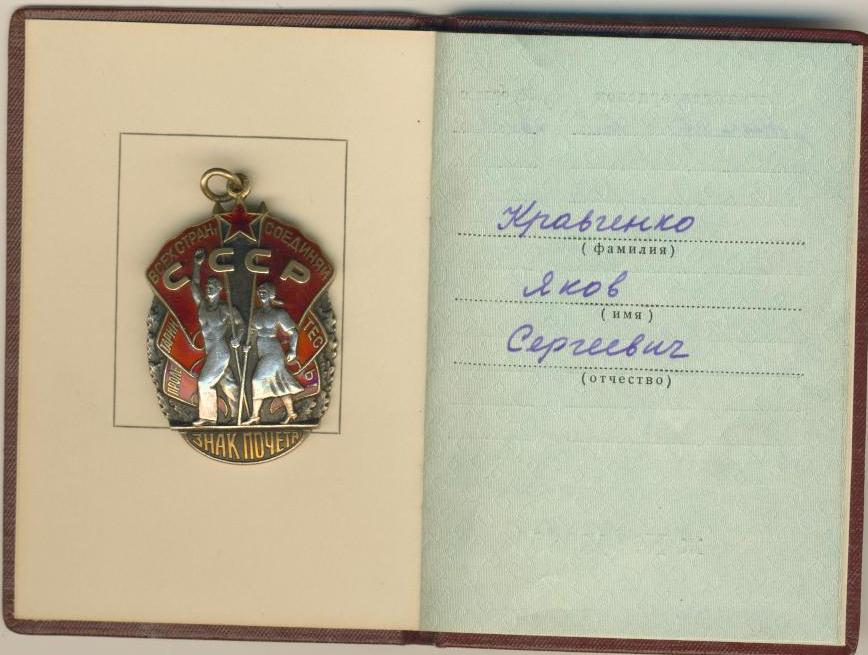 ВСЕХ СТРАН, СОЕДИНЯЙ
СССР
ПРОЛЕ ТАРИИ ТЕС Ь!
ЗНАК ПОЧЕТА
Кравченко
(фамилия)
Яков
(имя)
Сергеевич
(отчество)